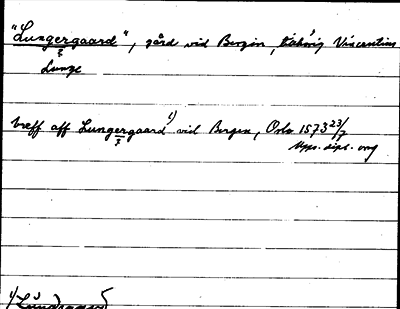 "Lungergaard", gård vid Bergen, Vincentius
Lunge
breff aff Lungergaard 1) vid Bergen, Oslo 1573 23/7
Ups. dipl. orig
1/ Lundgaard